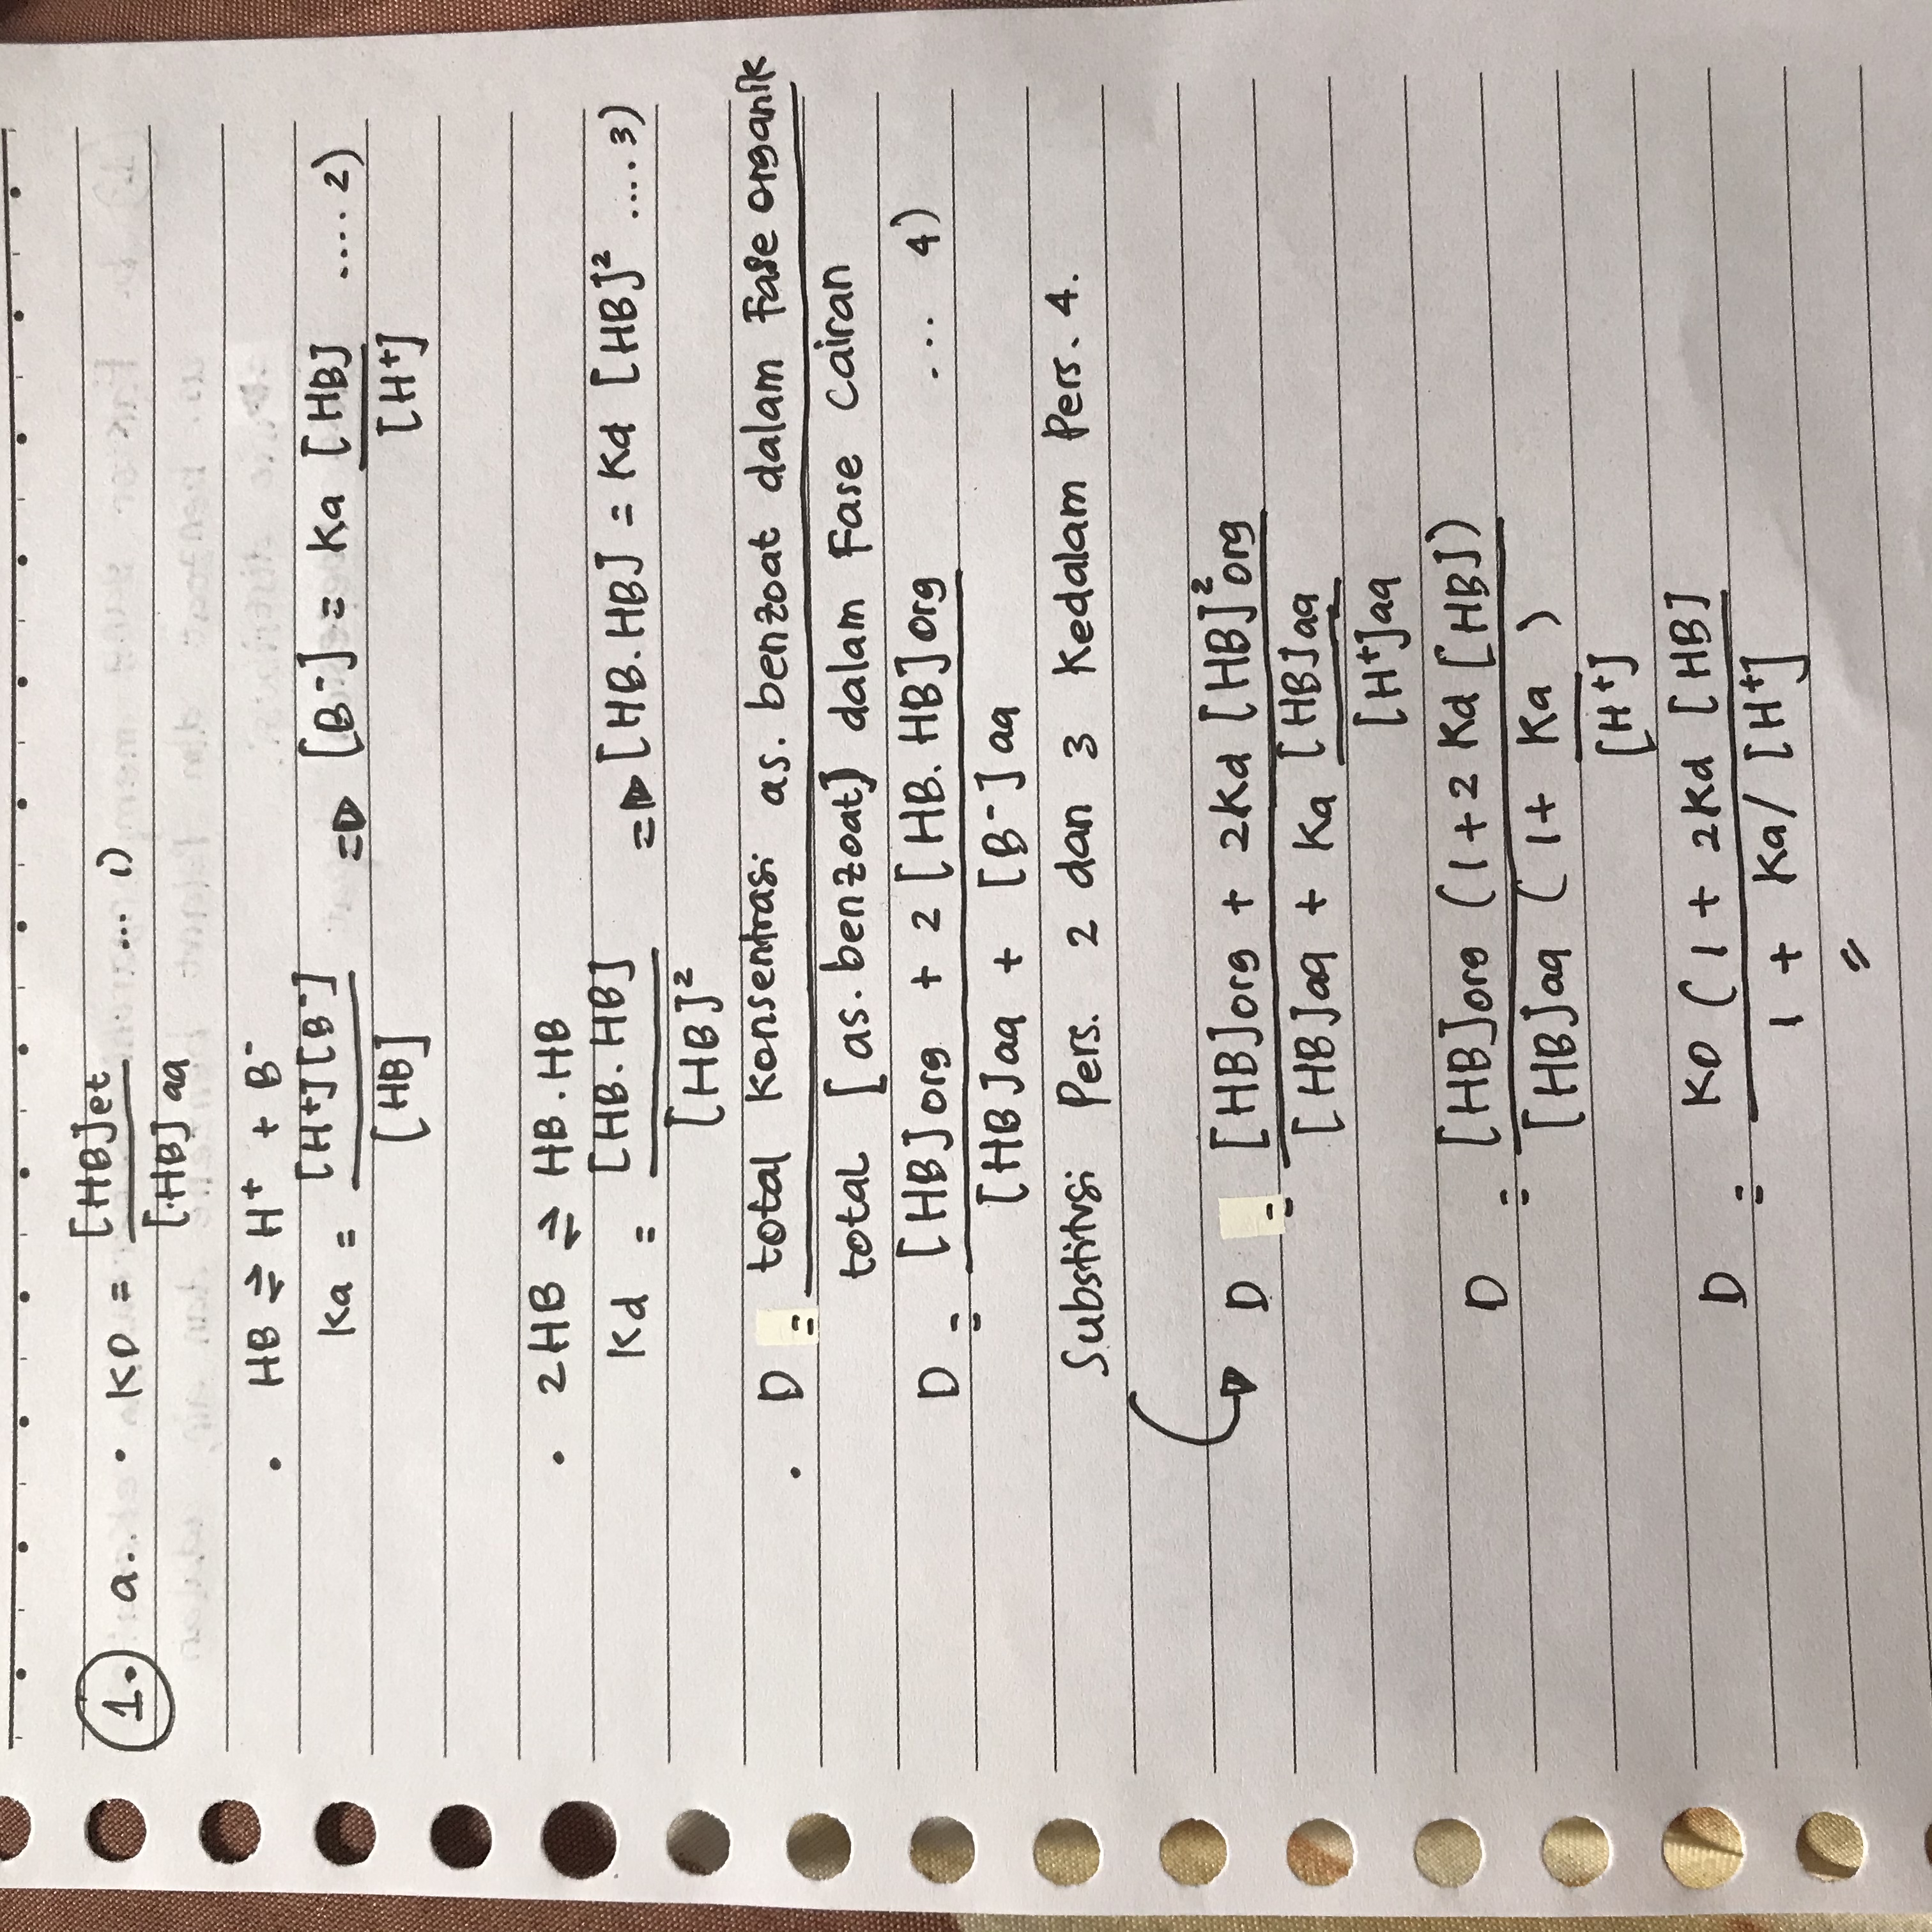 1. a. • KD = [HB]et / [HB]aq .... 1)
• HB ⇌ H⁺ + B⁻
Ka = [H⁺][B⁻] / [HB] => [B⁻] = Ka [HB] / [H⁺] .... 2)
• 2HB ⇌ HB.HB
Kd = [HB.HB] / [HB]² => [HB.HB] = Kd [HB]² .... 3)
• D = total Konsentrasi as. benzoat dalam Fase organik / total [as. benzoat] dalam Fase Cairan
D = [HB]org + 2 [HB.HB]org / [HB]aq + [B⁻]aq ... 4)
Substitusi Pers. 2 dan 3 Kedalam Pers. 4.
→ D = [HB]org + 2Kd [HB]²org / [HB]aq + Ka [HB]aq / [H⁺]aq
D = [HB]org (1 + 2 Kd [HB]) / [HB]aq (1 + Ka / [H⁺])
D = KD (1 + 2Kd [HB] / 1 + Ka/[H⁺]